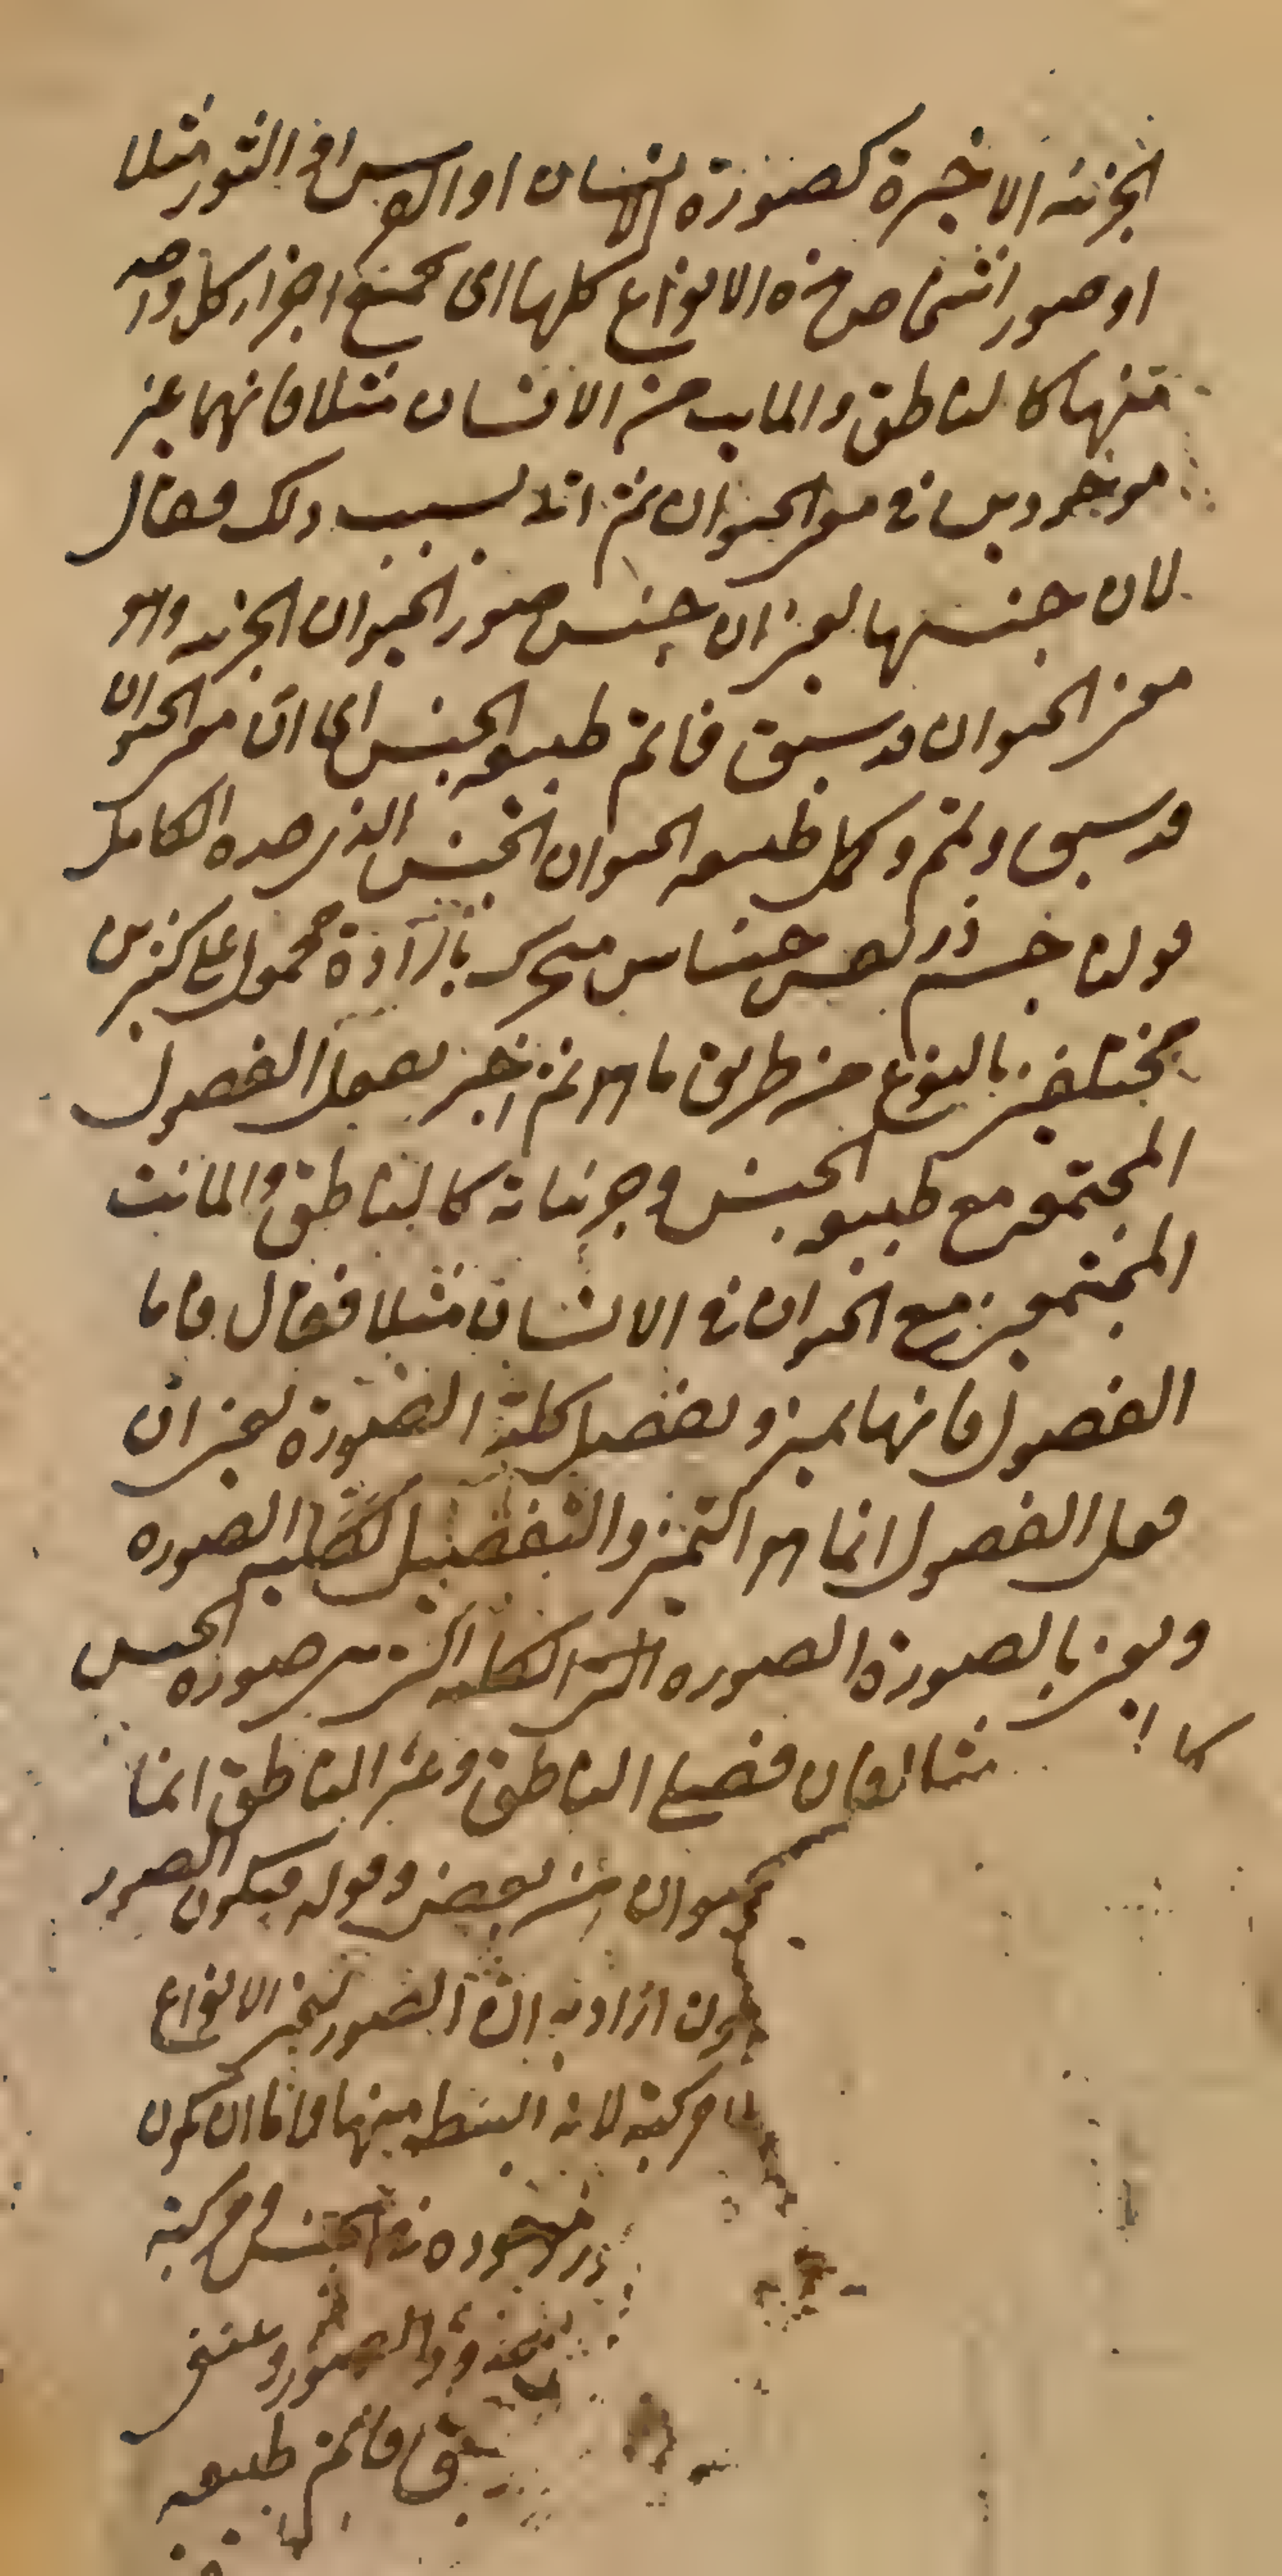 الجزئية الاخيرة كصورة الانسان او الفرس او الثور مثلا
او صور اشخاص هذه الانواع كلها اى جميع اجزاء كل واحد
منها كالناطق والمايت من الانسان مثلا فانهما غير
موجودين في معنى الحيوان ثم اتى بسبب ذلك فقال
لان جنسها يعنى ان جنس صور الحيوان الجزئية وهو
معنى الحيوان قد سبق فاتم طبيعة الجنس اى ان معنى الحيوان
قد سبق وتم وكمل طبيعة الحيوان الجنس الذي حده الكامل
قولنا جسم ذو نفس حساس متحرك بارادة محمول على كثيرين
مختلفين بالنوع من طريق ما هو ثم اخبر بفعل الفصول
المجتمعة مع طبيعة الجنس وجزئياته كالناطق والمائت
المجتمعين مع الحيوان في الانسان مثلا فقال فاما
الفصول فانها تميز وتفصل كلية الصورة يعنى ان
فعل الفصول انما هو التميز والتفصيل لكلية الصورة
ويعنى بالصورة الصورة الكلية التي هي صورة الجنس
مثلا فان فصلى الناطق وغير الناطق انما
من بعض وقوله فيكون الصور
اراد به ان الصور يعنى الانواع
مركبة لانه البسيطة منها فاما ان تكون
موجودة في الجنس ومركبة
الصور وعنى
فاتم طبيعة